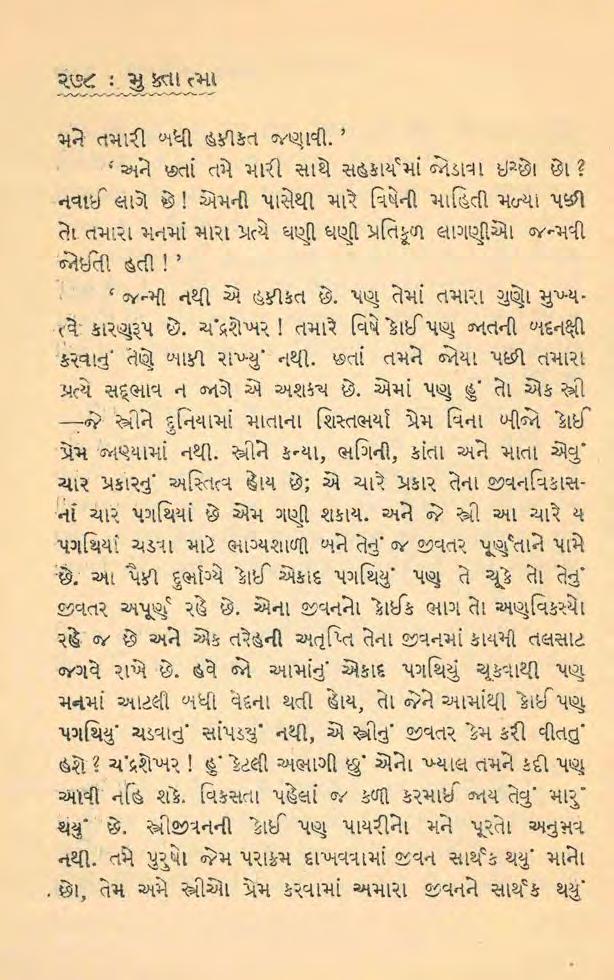 ૨૭૮ : મુ ક્તા ત્મા
મને તમારી બધી હકીકત જણાવી.’
‘અને છતાં તમે મારી સાથે સહકાર્યમાં જોડાવા ઇચ્છો છો ?
નવાઈ લાગે છે ! એમની પાસેથી મારે વિષેની માહિતી મળ્યા પછી
તો તમારા મનમાં મારા પ્રત્યે ઘણી ઘણી પ્રતિકૂળ લાગણીઓ જન્મવી
જોઈતી હતી ! ’
‘ જન્મી નથી એ હકીકત છે. પણ તેમાં તમારા ગુણો મુખ્ય-
ત્વે કારણરૂપ છે. ચંદ્રશેખર ! તમારે વિષે કોઈ પણ જાતની બદનક્ષી
કરવાનું તેણે બાકી રાખ્યું નથી. છતાં તમને જોયા પછી તમારા
પ્રત્યે સદ્ભાવ ન જાગે એ અશક્ય છે. એમાં પણ હું તો એક સ્ત્રી
—જે સ્ત્રીને દુનિયામાં માતાના શિસ્તભર્યા પ્રેમ વિના બીજો કોઈ
પ્રેમ જાણ્યામાં નથી. સ્ત્રીને કન્યા, ભગિની, કાંતા અને માતા એવું
ચાર પ્રકારનું અસ્તિત્વ હોય છે; એ ચારે પ્રકાર તેના જીવનવિકાસ-
નાં ચાર પગથિયાં છે એમ ગણી શકાય. અને જે સ્ત્રી આ ચારે ય
પગથિયાં ચડવા માટે ભાગ્યશાળી બને તેનું જ જીવતર પૂર્ણતાને પામે
છે. આ પૈકી દુર્ભાગ્યે કોઈ એકાદ પગથિયું પણ તે ચૂકે તો તેનું
જીવતર અપૂર્ણ રહે છે. એના જીવનનો કોઈક ભાગ તો અણવિકસ્યો
રહે જ છે અને એક તરેહની અતૃપ્તિ તેના જીવનમાં કાયમી તલસાટ
જગવે રાખે છે. હવે જો આમાંનું એકાદ પગથિયું ચૂકવાથી પણ
મનમાં આટલી બધી વેદના થતી હોય, તો જેને આમાંથી કોઈ પણ
પગથિયું ચડવાનું સાંપડયું નથી, એ સ્ત્રીનું જીવતર કેમ કરી વીતતું
હશે ? ચંદ્રશેખર ! હું કેટલી અભાગી છું એનો ખ્યાલ તમને કદી પણ
આવી નહિ શકે. વિકસતા પહેલાં જ કળી કરમાઈ જાય તેવું મારું
થયું છે. સ્ત્રીજીવનની કોઈ પણ પાયરીનો મને પૂરતો અનુભવ
નથી. તમે પુરુષો જેમ પરાક્રમ દાખવવામાં જીવન સાર્થક થયું માનો
છો, તેમ અમે સ્ત્રીઓ પ્રેમ કરવામાં અમારા જીવનને સાર્થક થયું